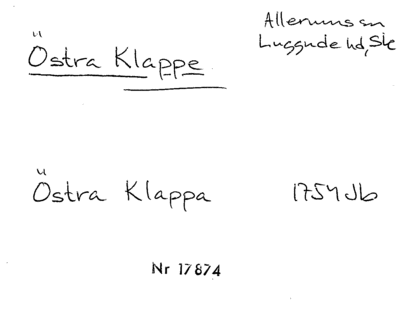 Östra Klappe
Allerums sn
Luggude hd, Sk
Östra Klappa 1754 Jb
Nr 17874